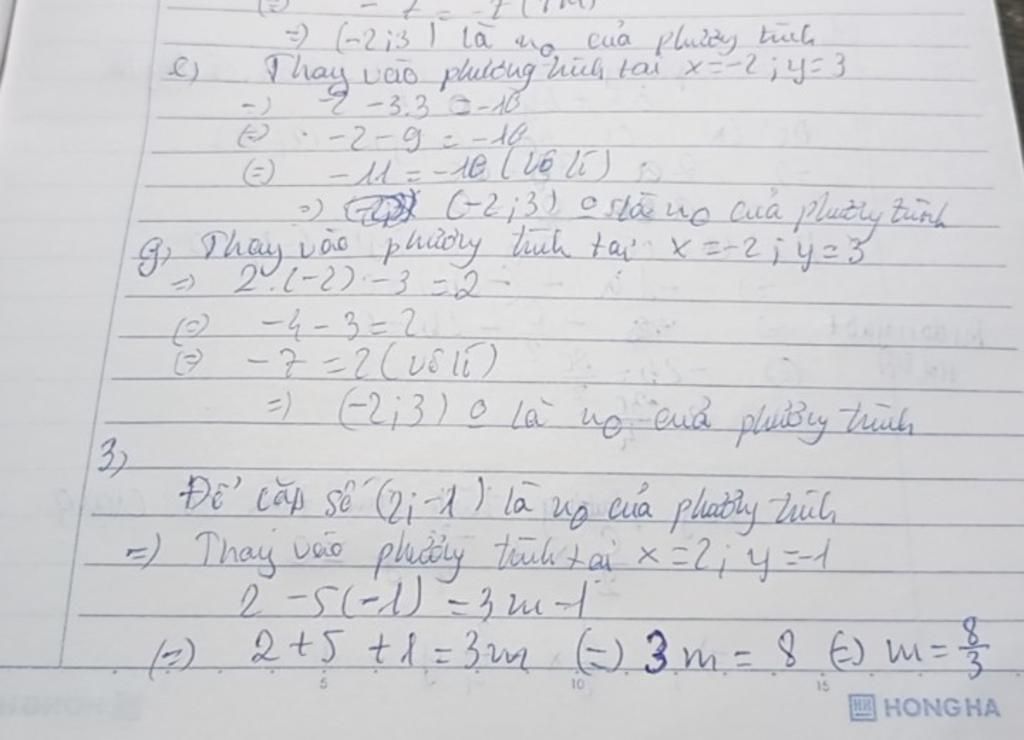 (=) -7 = -7 (TM)
=) (-2;3) là no của phương trình
e) Thay vào phương trình tại x=-2; y=3
=) -2 -3.3 = -10
(=) -2 - 9 = -10
(=) -11 = -10 (Vô lí)
=) (-2;3) o là no của phương trình
g) Thay vào phương trình tại x=-2; y=3
=) 2.(-2) - 3 = 2
(=) -4 - 3 = 2
(=) -7 = 2 (vô lí)
=) (-2;3) o là no của phương trình
3)
Để cặp số (2;-1) là no của phương trình
=) Thay vào phương trình tại x=2; y=-1
2 -5(-1) = 3m-1
(=) 2+5+1=3m (=) 3m = 8 (=) m = 8/3
5 10 15
HH HONG HA